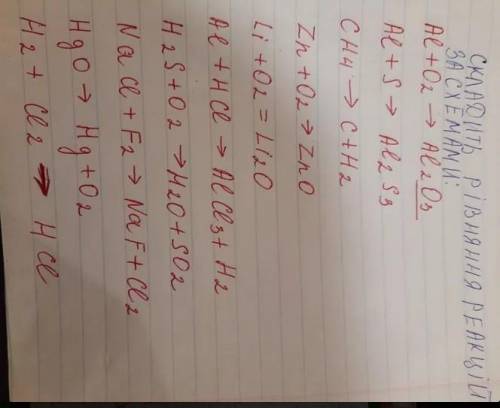 СКЛАДІТЬ РІВНЯННЯ РЕАКЦІЙ
ЗА СХЕМАМИ:
Al + O2 → Al2O3
Al + S → Al2S3
CH4 → C + H2
Zn + O2 → ZnO
Li + O2 = Li2O
Al + HCl → AlCl3 + H2
H2S + O2 → H2O + SO2
NaCl + F2 → NaF + Cl2
HgO → Hg + O2
H2 + Cl2 → HCl